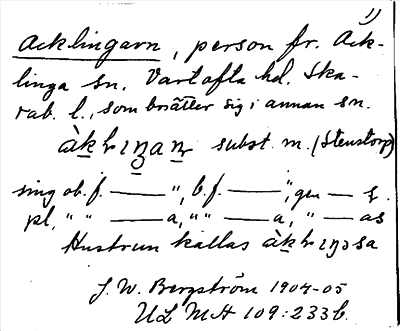 1)
Acklingarn, person fr. Ack-
linga sn. Vartofta hd. Ska-
rab. l., som bosätter sig i annan sn.
subst. m. (Stenstorp)
sing ob. f. ——— ", b. f. ——— ", gen — s.
pl. " " ——— a, " " ——— a, " — as
Hustrun kallas
J. W. Bergström 1904-05
ULMA 109:233 b.